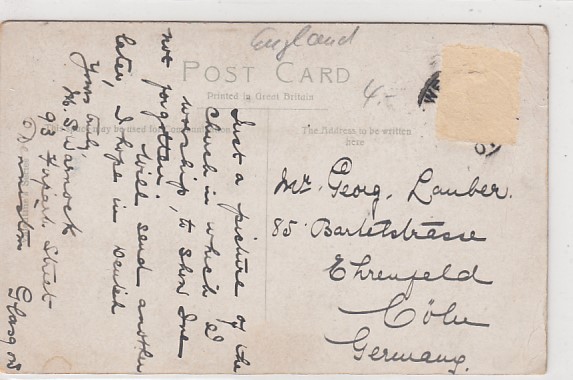 England
POST CARD
Printed in Great Britain
4.-
This space may be used for Communication
The Address to be written
here
Just a picture of the
Church in which I
worship, to show I've
not forgotten.
Will send another
later, I hope in
Yours truly,
M. S. Warnock
93 Street
Dennistoun
Glasgow
Mr. Georg. Lauber.
85 Bartelstrasse
Ehrenfeld
Cöln
Germany.